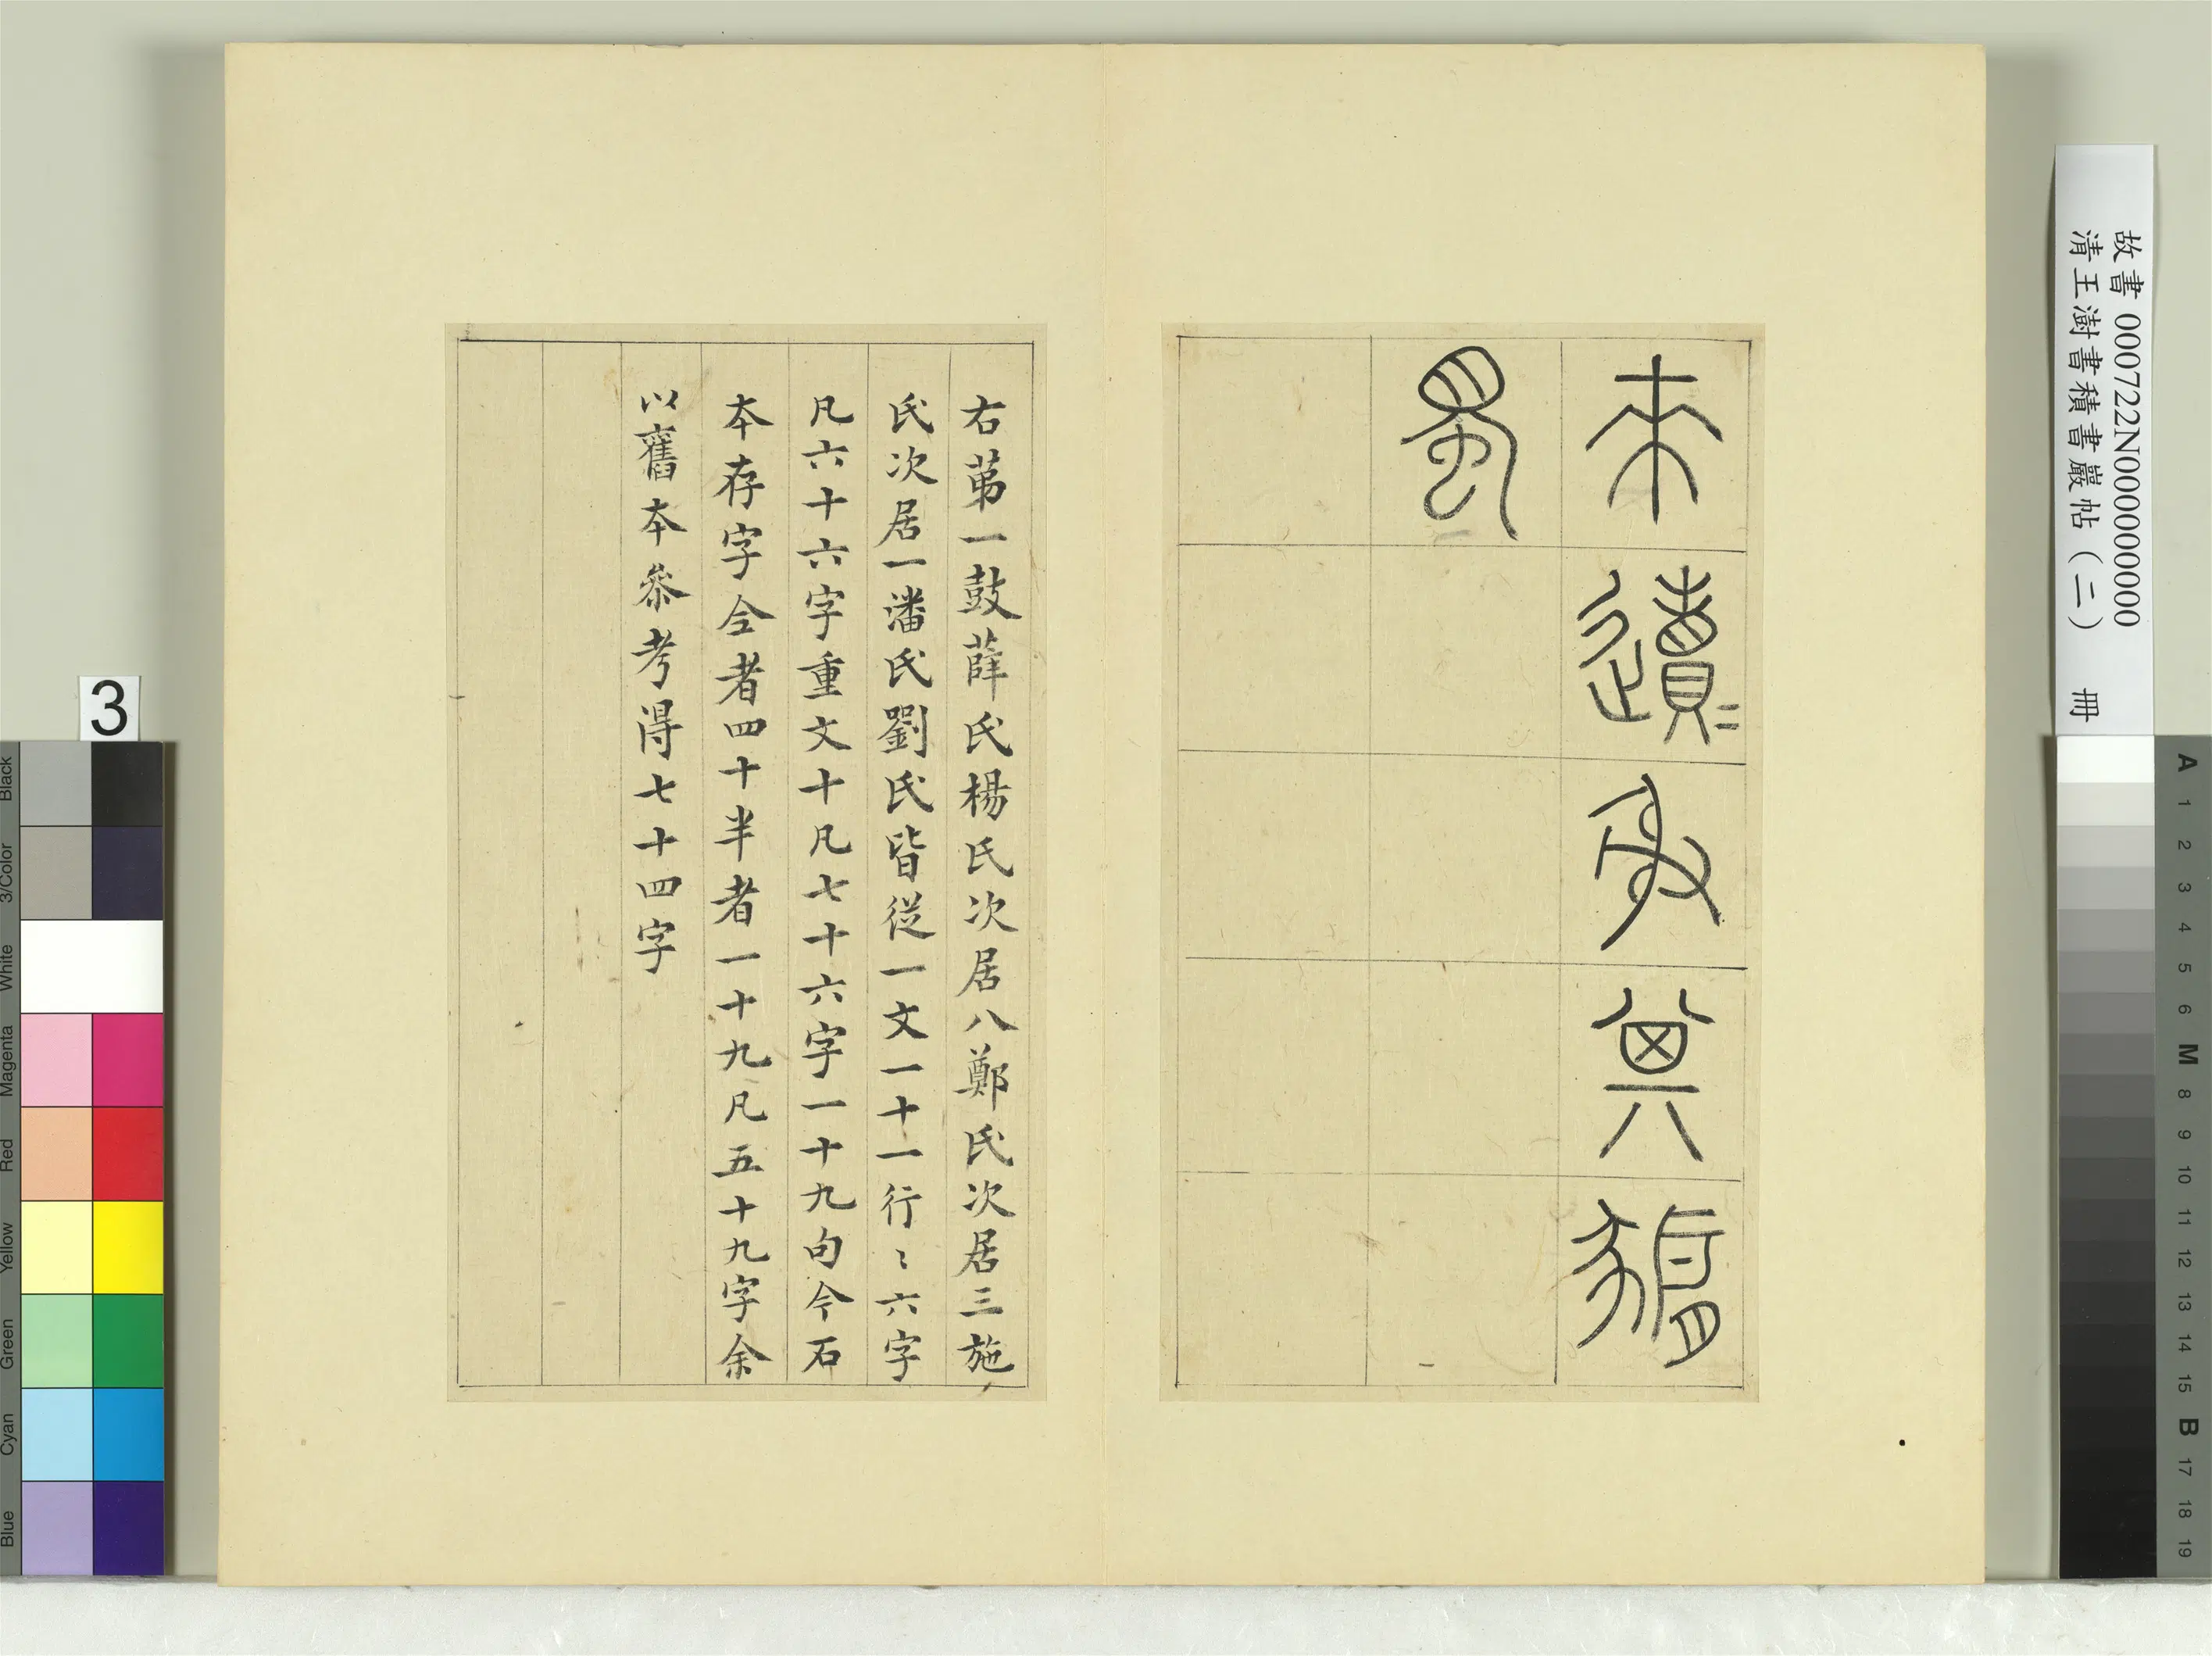 來遺=射其豜
蜀
右苐一鼓薛氏楊氏次居八鄭氏次居三施
氏次居一潘氏劉氏皆從一文一十一行〻六字
凡六十六字重文十凡七十六字一十九句今石
本存字全者四十半者一十九凡五十九字余
以舊本叅考得七十四字
故書 000722N000000000
清王澍書積書巖帖(二) 冊
3
Black
3/Color
White
Magenta
Red
Yellow
Green
Cyan
Blue
A 1 2 3 4 5 6 M 8 9 10 11 12 13 14 15 B 17 18 19